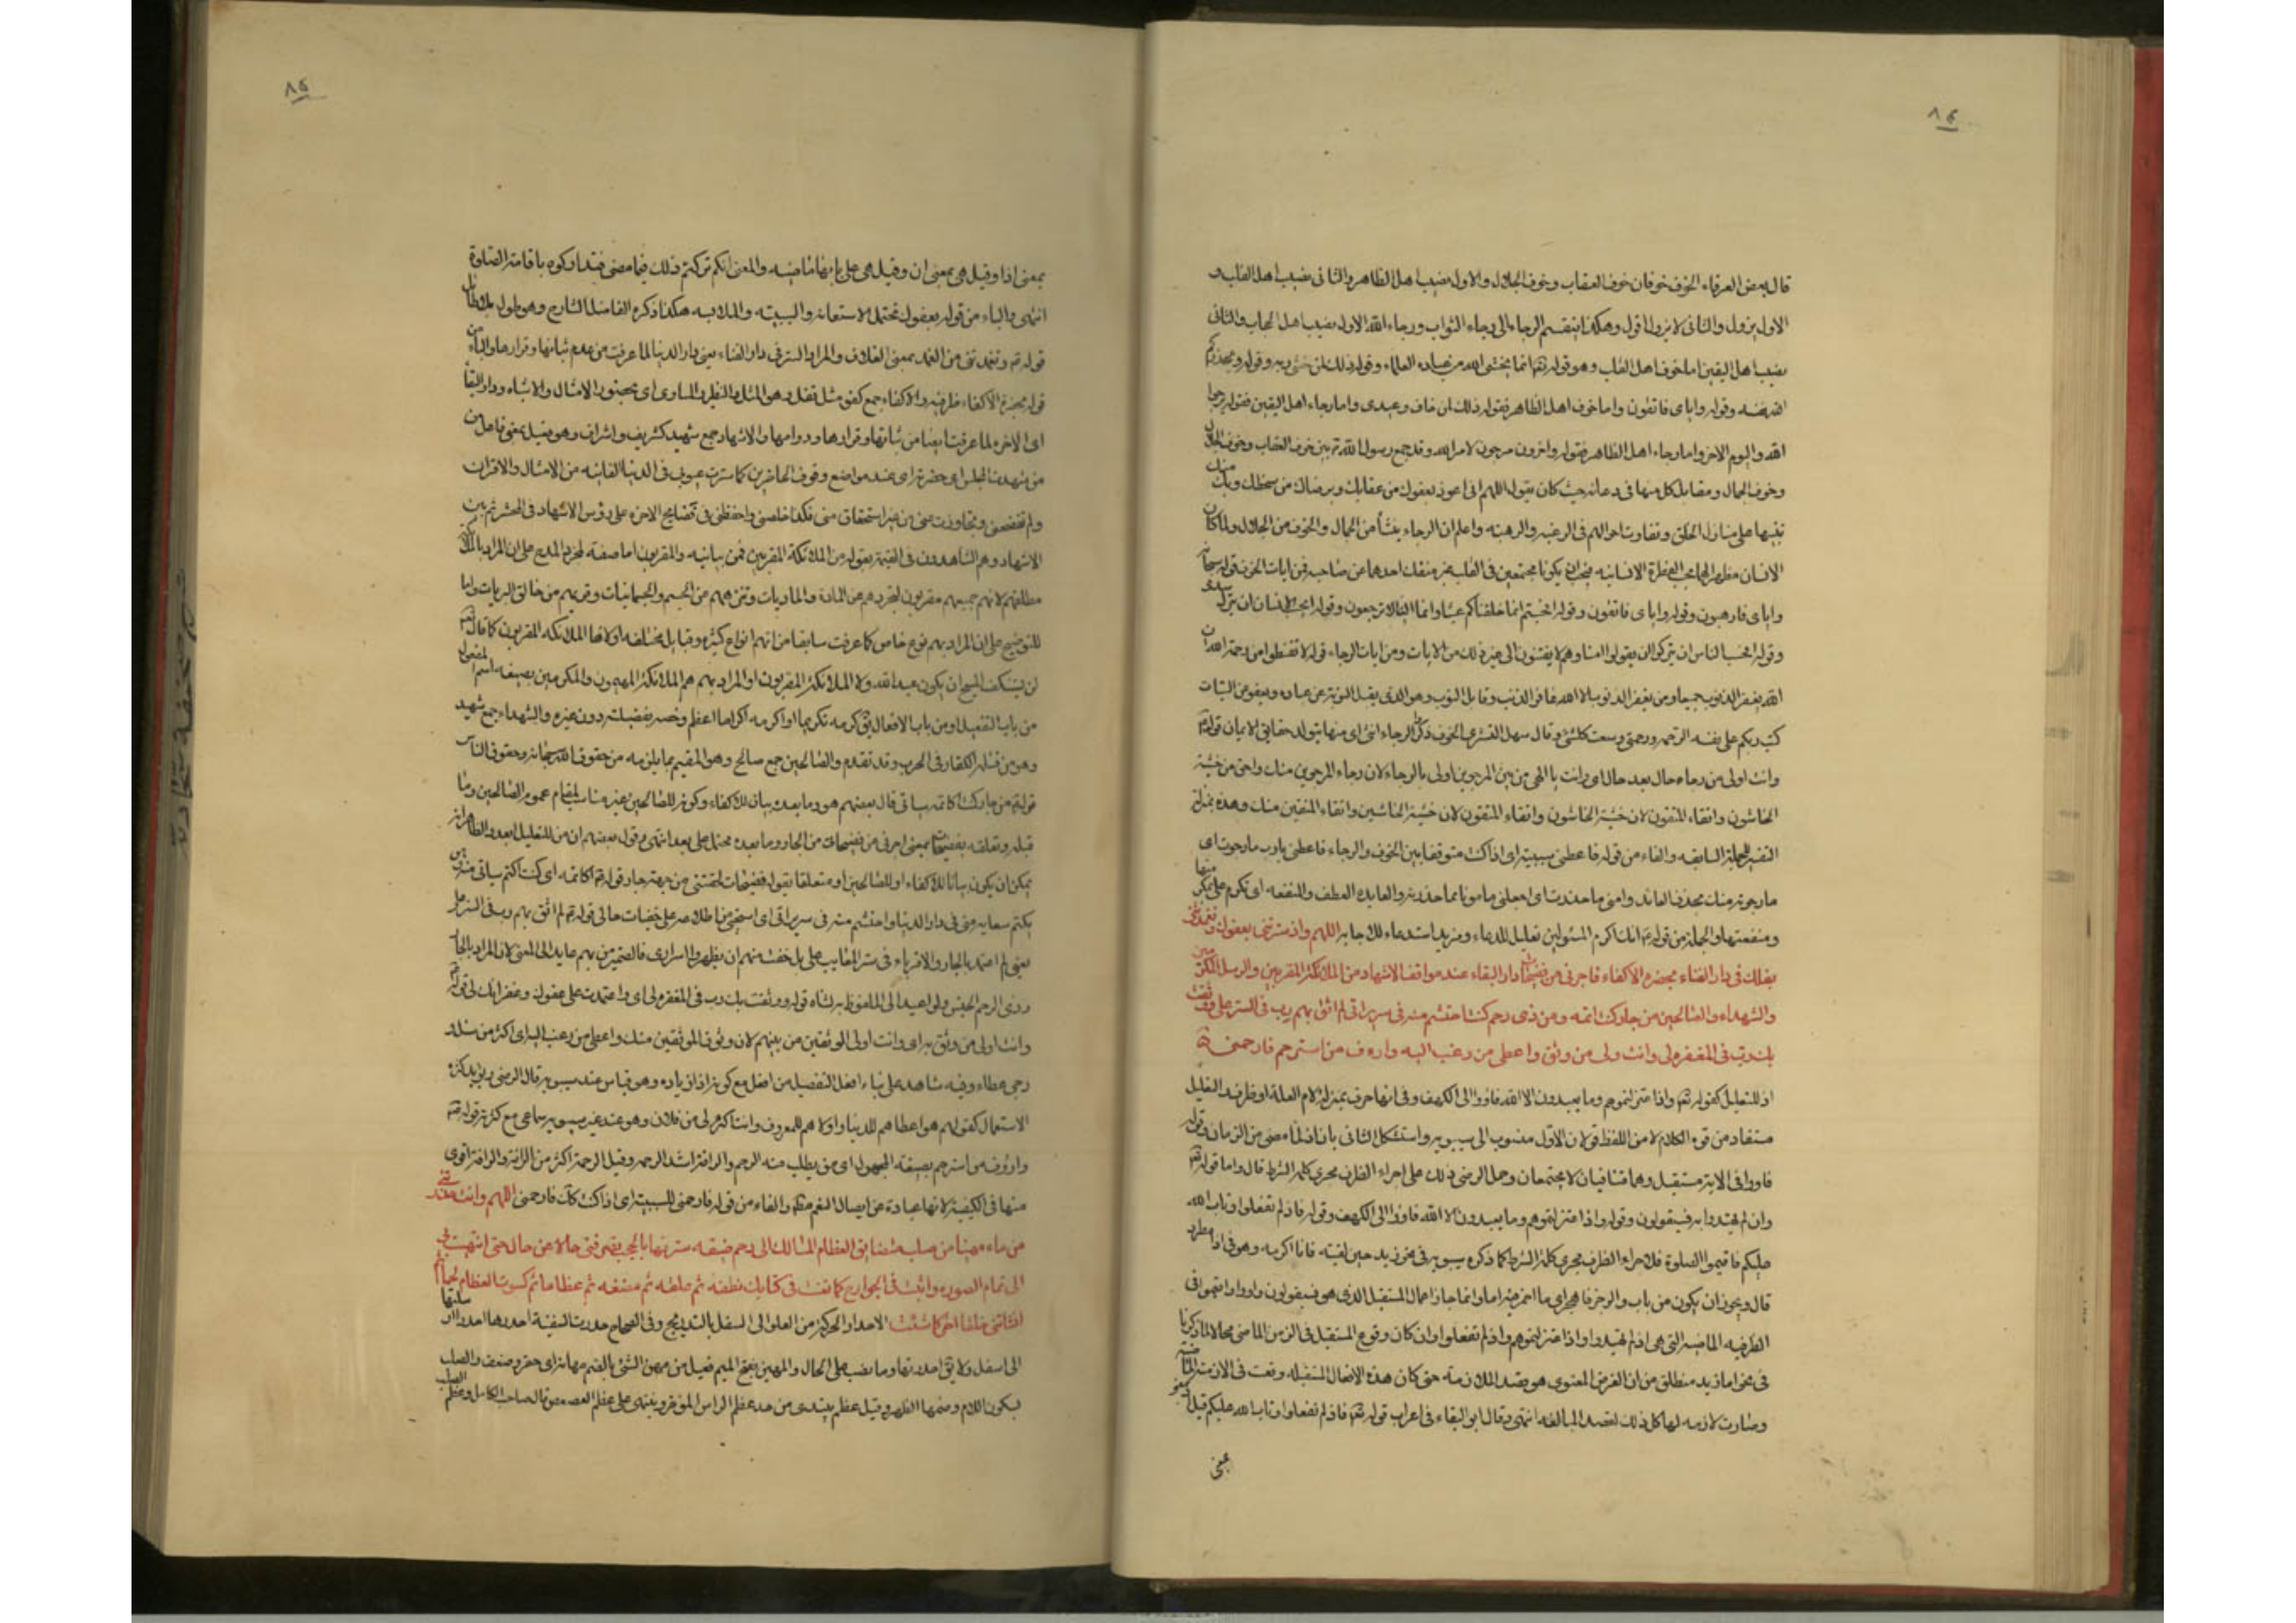 ٨٤
قال بعض العرفاء الخوف خوفان خوف العقاب وخوف الجلال والاول نصيب اهل الظاهر والثانى نصيب اهل القلب و
الاول يزول والثانى لا يزول اقول وهكذا ينقسم الرجاء الى رجاء الثواب ورجاء الله الاول نصيب اهل الحجاب والثانى
نصيب اهل اليقين اما خوف اهل القلب وهو قوله تعالى انما يخشى الله من عباده العلماء وقوله ذلك لمن خشى ربه وقوله ويحذركم
الله نفسه وقوله واياى فاتقون واما خوف اهل الظاهر فقوله ذلك لمن خاف وعيدى واما رجاء اهل اليقين فقوله يرجوا
الله واليوم الاخر واما رجاء اهل الظاهر فقوله واخرون مرجون لامر الله وقد جمع رسول الله بين خوف العقاب وخوف الجلال
وخوف الجمال ومقابل كل منها فى دعائه حيث كان يقول اللهم انى اعوذ بعفوك من عقابك وبرضاك من سخطك وبك منك
تنبيها على منازل الخلق وتفاوت احوالهم فى الرغبه والرهبه واعلم ان الرجاء ينشأ من الجمال والخوف من الجلال ولما كان
الانسان مظهر الجامع الفطرة الانسانيه يكونا مجتمعين فى القلب غير منفك احدهما عن صاحبه فمن ايات الخوف قوله سبحانه
واياى فارهبون وقوله واياى فاتقون وقوله افحسبتم انما خلقناكم عبثا وانكم الينا لا ترجعون وقوله ايحسب الانسان ان يترك سدى
وقوله احسب الناس ان يتركوا ان يقولوا امنا وهم لا يفتنون الى غير ذلك من الايات ومن ايات الرجاء قوله لا تقنطوا من رحمة الله ان
الله يغفر الذنوب جميعا ومن يغفر الذنوب الا الله غافر الذنب وقابل التوب وهو الذى يقبل التوبة عن عباده ويعفو عن السيئات
كتب ربكم على نفسه الرحمة ورحمتى وسعت كل شئ وقال سهل القشرى الخوف ذكر والرجاء انثى اى منهما يتولد حقايق الايمان قوله
وانت اولى من رجاه حال بعد حال اى وانت يا الهى من بين المرجوين اولى بالرجاء لان رجاء المرجوين منك واحق من خشيه
الخاشون واتقاه المتقون لان خشية الخاشين واتقاء المتقين منك وهذه بمنزلة
التفسير للجملة السابقه والفاء من قوله فاعطنى سببيه اى اذا كنت متوقفا بين الخوف والرجاء فاعطنى يا رب ما رجوت اى
ما رجوته منك بحذف العايد وامنى ما حذرت اى اجعلنى مامونا مما حذرته والعايده العطف والمنفعه اى تكرم على بمكرمتها
ومنفعتها والجملة من قوله انك اكرم المسئولين تعليل للدعاء ومزيد استدعاء للاجابه اللهم واذ سترتنى بعفوك وتغمدتنى
بفضلك فى دار الفناء بحضرة الاكفاء فاجرنى من فضيحات دار البقاء عند مواقف الاشهاد من الملائكة المقربين والرسل المكرمين
والشهداء والصالحين من جار كنت اكاتمه ومن ذى رحم كنت احتشم منه فى سريراتى لم اثق بهم رب فى الستر على ووثقت
بك رب فى المغفره لى وانت اولى من وثق به واعطى من رغب اليه واراف من استرحم فارحمنى
اذ للتعليل كقوله تعالى واذ اعتزلتموهم وما يعبدون الا الله فاووا الى الكهف وفى انها حرف بمنزله لام العلة او ظرف والتعليل
مستفاد من قوه الكلام لا من اللفظ قولان الاول منسوب الى سيبويه واستشكل الثانى بان اذ لما مضى من الزمان وقوله
فاووا فى الايه مستقبل وهما متنافيان لا يجتمعان وحمل الرضى ذلك على اجراء الظرف مجرى كلمه الشرط قال واما قوله
واذ لم يهتدوا به فسيقولون وقوله واذ اعتزلتموهم وما يعبدون الا الله فاووا الى الكهف وقوله فاذ لم تفعلوا وتاب الله
عليكم فاقيموا الصلوة فلاجراء الظرف مجرى كلمة الشرط كما ذكره سيبويه فى نحو زيد حين لقيته فانا اكرمه وهو فى اذ مطرد
قال ويجوز ان يكون من باب والرجز فاهجر اى مما اضمر فيه اما وانما جاز اعمال المستقبل الذى هو فسيقولون واووا واقيموا فى
الظرفيه الماضيه التى هى اذ لم يهتدوا واذ اعتزلتموهم واذ لم تفعلوا وان كان وقوع المستقبل فى الزمن الماضى محالا لما ذكرنا
فى نحو اما زيد منطلق من ان الغرض المعنوى هو قصد الملازمة حتى كان هذه الافعال المستقبله وقعت فى الازمنة الماضيه
وصارت لازمه لها كل ذلك لقصد المبالغه انتهى وقال ابو البقاء فى اعراب قوله تعالى فاذ لم تفعلوا وتاب الله عليكم قيل
بمعنى
٨٥
بمعنى اذا وقيل هى بمعنى ان وقيل هى على بابها ماضيه والمعنى انكم تركتم ذلك فيما مضى فتداركوه باقامة الصلوة
انتهى والباء من قوله بعفوك تحتمل الاستعانه والسببيه والملابسه هكذا ذكره الفاضل الشارح وهو طول بلا طائل
قوله وتغمدتنى من الغمد بمعنى الغلاف والمراد الستر فى دار الفناء يعنى دار الدنيا لما عرفت من عدم ثباتها وقرارها والباء من
قوله بحضرة الاكفاء ظرفيه والاكفاء جمع كفو مثل قفل وهو المثل والنظير والمساوى اى بحضور الامثال والاشباه ودار البقاء
اى الاخره لما عرفت ايضا من ثباتها وقرارها ودوامها والاشهاد جمع شهيد كشريف واشراف وهو فعيل بمعنى فاعل من
من شهدت المجلس اى حضرته اى عند مواضع وقوف الحاضرين كما سترت عيوبى فى الدنيا الفانيه من الامثال والاقران
ولم تفضحنى وتجاوزت عنى من غير استحقاق منى فكذا خلصنى واحفظنى فى فضايح الاخره على رؤس الاشهاد فى الحشر ثم بين
الاشهاد وهم الشاهدون فى القيمة بقوله من الملائكة المقربين فمن بيانيه والمقربون اما صفة لمجرد المدح على ان المراد بالملائكة
مطلقهم لانهم جميعهم مقربون لتجردهم عن المادة والماديات وتنزههم عن الجسم والجسمانيات وقربهم من خالق البريات واما
للتوضيح على ان المراد بهم نوع خاص كما عرفت سابقا من انهم انواع كثيره وقبايل مختلفه اولاها الملائكه المقربون كما قال
لن يستنكف المسيح ان يكون عبدا لله ولا الملائكة المقربون او المراد بهم هم الملائكة المهيمون والمكرمين بصيغه اسم المفعول
من باب التفعيل او من باب الافعال يق كرمه تكريما او اكرمه اكراما اعظم وخصه بفضيلة دون غيره والشهداء جمع شهيد
وهو من قتله الكفار فى الحرب وقد تقدم والصالحين جمع صالح وهو المقيم بما يلزمه من حقوق الله سبحانه وحقوق الناس
قوله من جار كنت اكاتمه سياتى قال بعضهم هو وما بعده بيان للاكفاء وكونه للصالحين غير مناسب لمقام عموم الصالحين وما
قبله وتعلقه بفضيحات بمعنى اجرنى من فضيحات من الجار وما بعده محتمل على بعد انتهى وقول بعضهم ان من للتعليل ابعد والظاهر انه
يمكن ان يكون بيانا للاكفاء او للصالحين او متعلقا بقوله فضيحات لحقتنى من جهة جار قوله اكاتمه اى كنت اكتم سياتى منه
يكتم معايبه منى فى دار الدنيا واحتشم منه فى سريراتى اى استحيى من اطلاعه على خفيات حالى قوله لم اثق بهم رب فى الستر على
يعنى لم اعتمد بالجار والاقرباء فى ستر المعايب على بل خفت منهم ان يظهروا اسرارى فالضمير فى بهم عايد الى المعنى لان المراد بالجار
وذى الرحم الجنس ولو اعيد الى الملفوظ به لثناه قوله ووثقت بك رب فى المغفره لى اى واعتمدت على عفوك وغفرانك لى قوله
وانت اولى من وثق به اى وانت اولى الموثقين من بينهم لان وثوق الموثقين منك واعطى من رغب اليه اى اكثر من سئل و
رجى عطاء وفيه شاهد على بناء افعل التفضيل من افعل مع كونه ذا زياده وهو قياس عند سيبويه قال الرضى ويؤيده كثرة
الاستعمال كقولهم هو اعطاهم للدنيا واولاهم للمعروف وانت اكرم لى من فلان وهو عند غير سيبويه سماعى مع كثرته قوله
وارؤف من استرحم بصيغة المجهول اى من يطلب منه الرحم والرافة اشد الرحمه وقيل الرحمة اكثر من الرافة والرافة اقوى
منها فى الكيفية لانها عبارة عن ايصال النعم والفاء من قوله فارحمنى للسببيه اى اذا كنت كك فارحمنى اللهم وانت حدرتنى
من ماء مهينا من صلب متضايق العظام المسالك الى رحم ضيقه سترتها بالحجب تصرفنى حالا عن حال حتى انتهيت بى
الى تمام الصوره واثبت فى الجوارح كما نعت فى كتابك نطفه ثم علقه ثم مضغه ثم عظاما ثم كسوت العظام لحما ثم
انشاتنى خلقا اخر كما شئت الاحدار الحركة من العلو الى السفل بالتدريج وفى الصحاح حدرت السفينة احدرها اذا ارسلتها
الى اسفل ولا يق احدرتها وماء نصب على الحال والمهين بفتح الميم فعيل من مهن الشئ بالضم مهانة اى حقر وضعف والصلب
بسكون اللام وضمها الظهر وقيل عظم يبتدى من حد عظم الراس المؤخر وينتهى على عظم العصعص قال صاحب الكامل وعظم الصلب